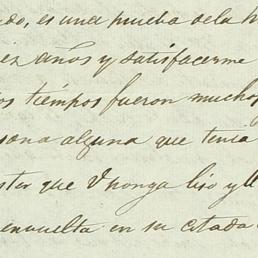 do, es una prueba dela h
iez años y satisfacerme
os tiempos fueron mucho
sona alguna que tenia
ster que V ponga liso y ll
envuelta en su citada